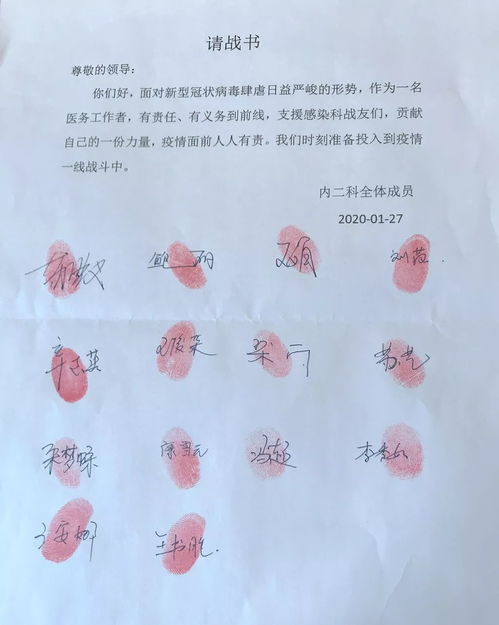 请战书
尊敬的领导：
你们好，面对新型冠状病毒肆虐日益严峻的形势，作为一名
医务工作者，有责任、有义务到前线，支援感染科战友们，贡献
自己的一份力量，疫情面前人人有责。我们时刻准备投入到疫情
一线战斗中。
内二科全体成员
2020-01-27
鲍丽
辛志英
梁宁
冯超
王安娜 王书胜